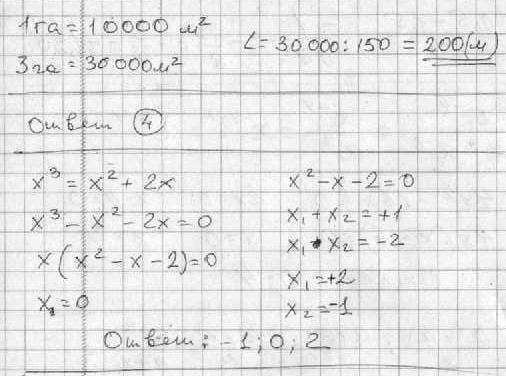 1 га = 10000 м²
3 га = 30000 м²
L = 30 000 : 150 = 200 (м)
Ответ 4
x³ = x² + 2x
x³ - x² - 2x = 0
x(x² - x - 2) = 0
x₁ = 0
x² - x - 2 = 0
x₁ + x₂ = +1
x₁ • x₂ = -2
x₁ = +2
x₂ = -1
Ответ: -1; 0; 2